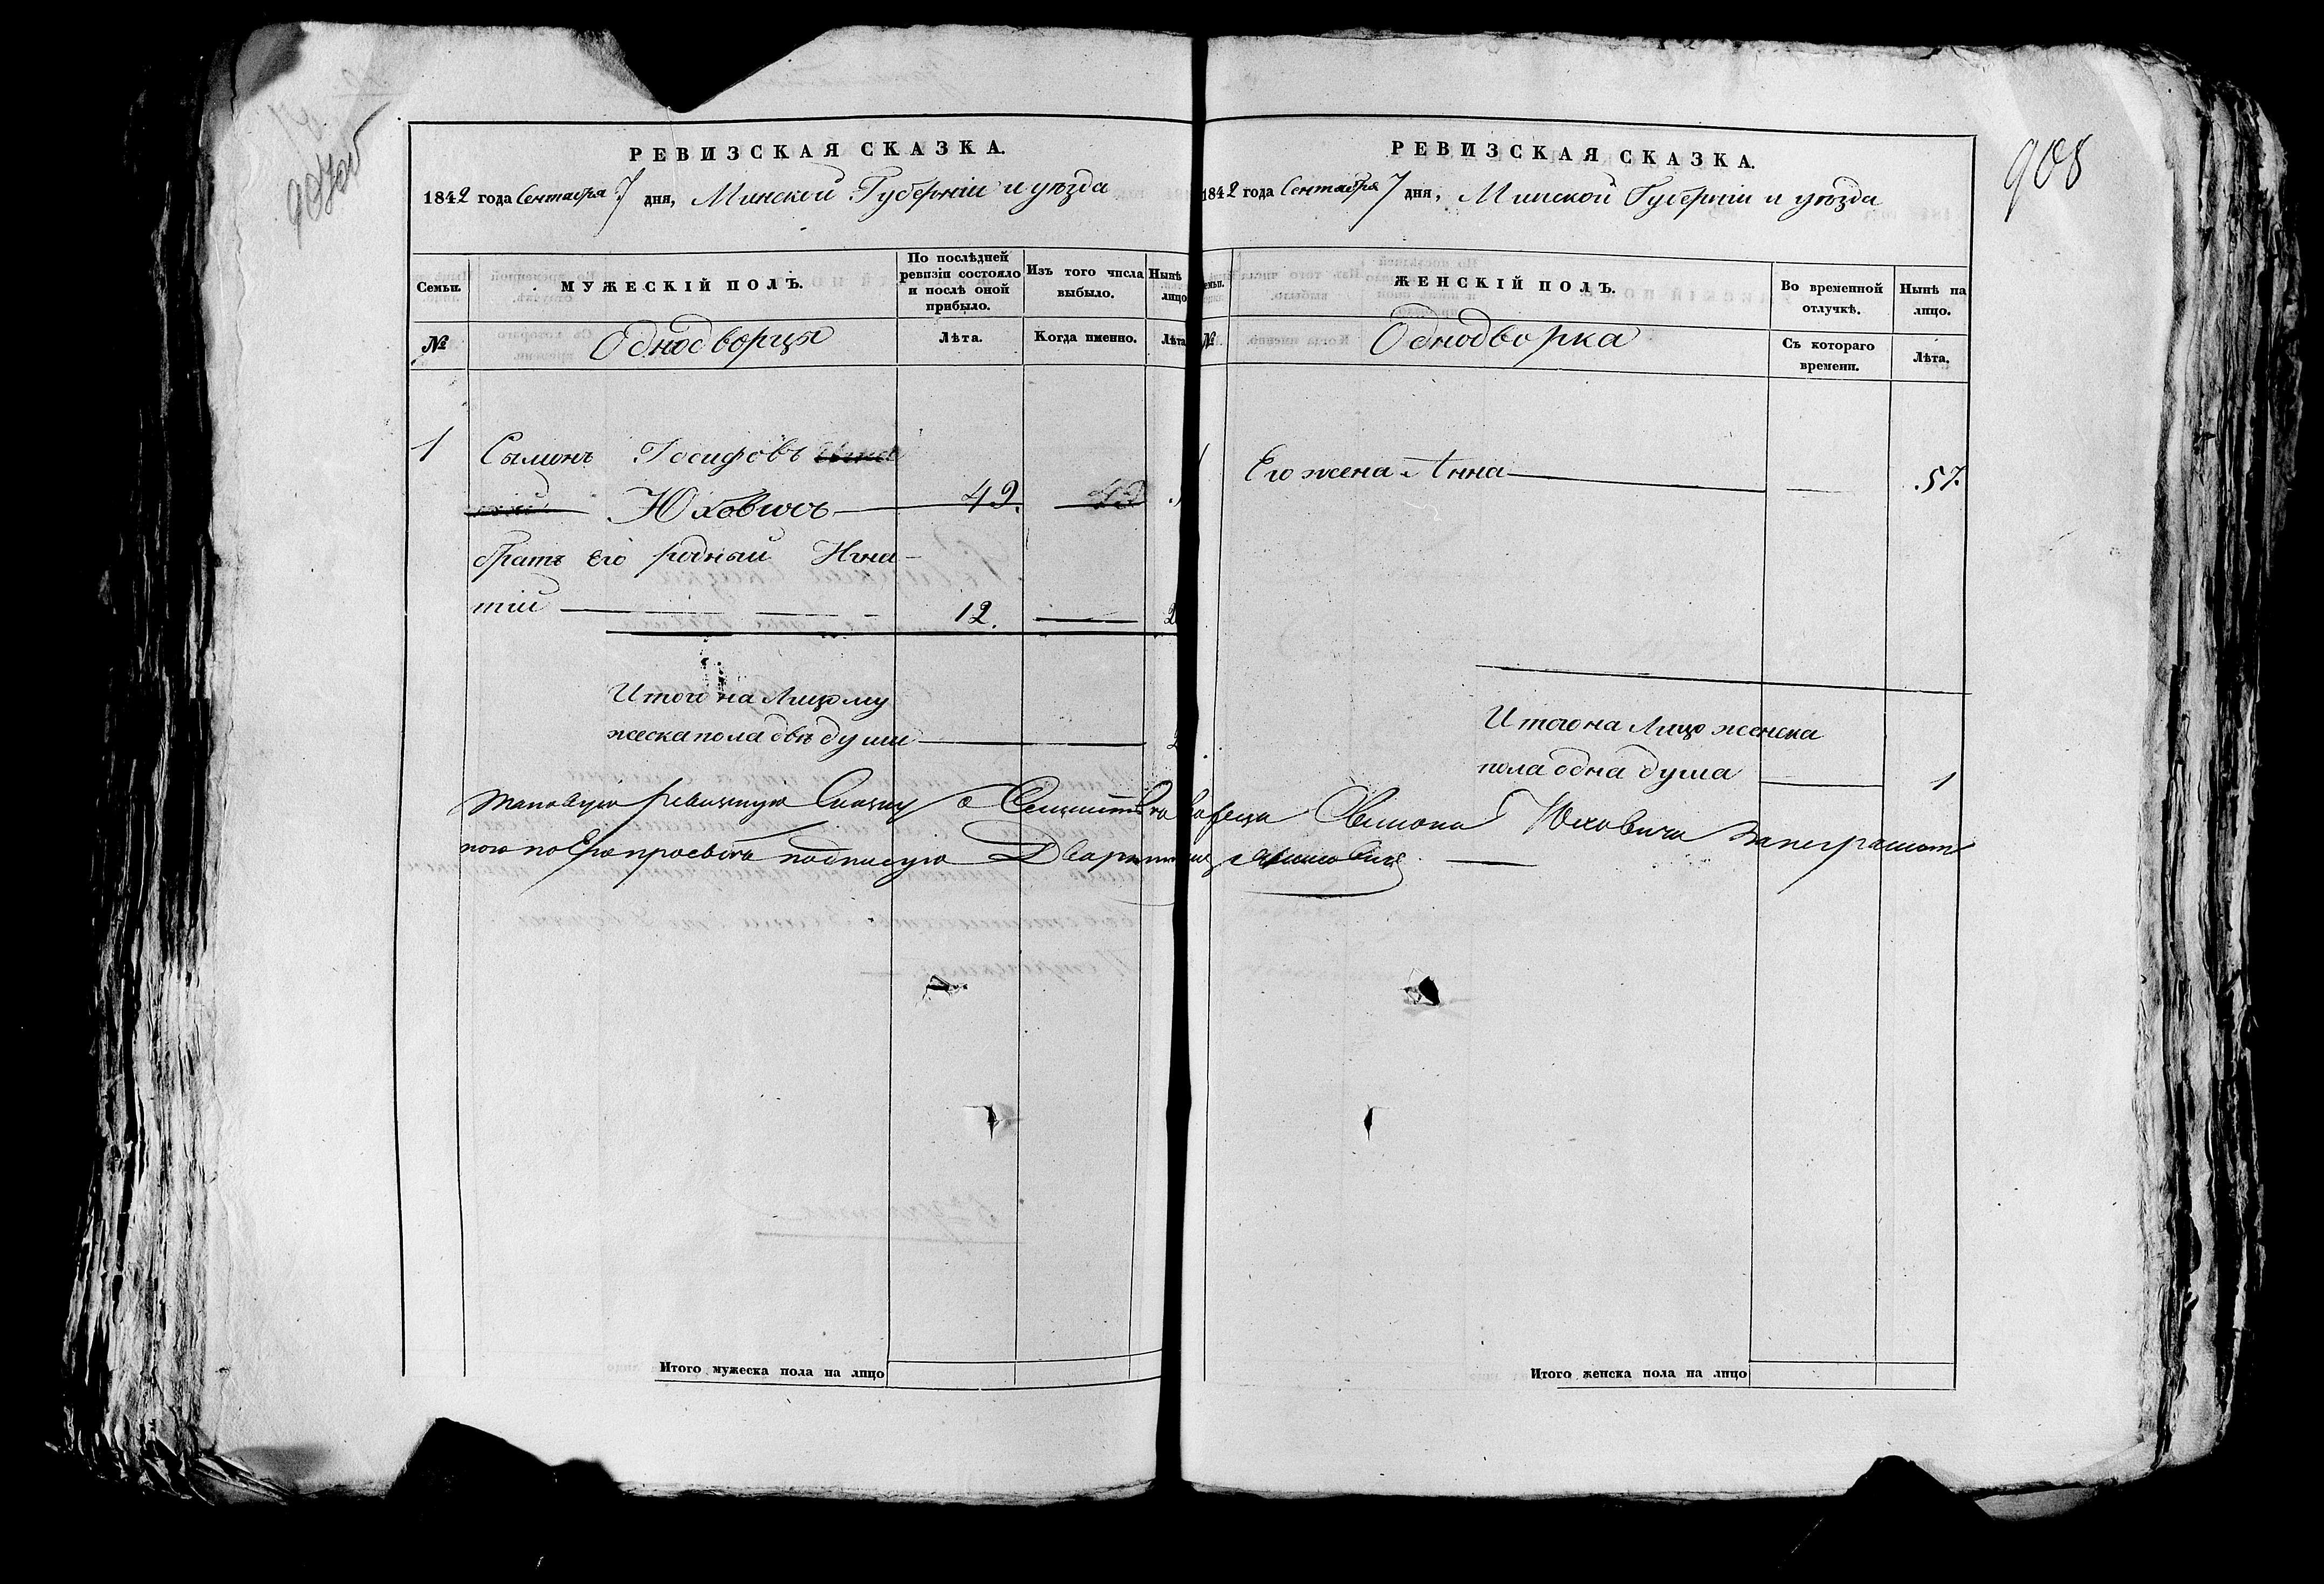 907об
РЕВИЗСКАЯ СКАЗКА.
1842 года Сентября 7 дня, Минской Губерніи и уѣзда
Семьи.
МУЖЕСКІЙ ПОЛЪ.
По послѣдней ревизіи состояло и послѣ оной прибыло.
Изъ того числа выбыло.
Нынѣ
лицо
№
Однодворцы
Лѣта.
Когда именно.
Лѣта
1 Сымонъ Іосифовъ
Юховичъ 49.
братъ его родный Игна-
тій 12. 2
Итого на Лицо му
жеска пола двѣ души 2
РЕВИЗСКАЯ СКАЗКА.
1842 года Сентября 7 дня, Минской Губерніи и уѣзда
908
емьи.
ЖЕНСКІЙ ПОЛЪ.
Во временной отлучкѣ.
Нынѣ на лицо.
№
Однодворка
Съ котораго времени.
Лѣта.
1 Его жена Анна 57.
Итого на Лицо женска
пола одна душа 1
таковую ревизкую Сказку Юховича
ного по Его прозьбѣ подписую Дворянинъ
Итого мужеска пола на лицо
Итого женска пола на лицо